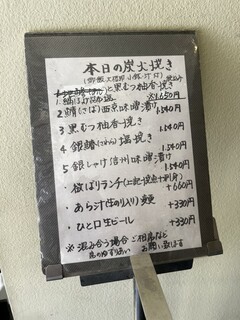 本日の炭火焼き
(御飯、大根卸、小鉢、汁付) 税込み
と黒むつ柚香焼き
1. 鯖 1,650円
2 鯖(さば)西京味噌漬け 1,540円
3 黒むつ柚香焼き 1,540円
4 銀鱈(たら)塩焼き 1,540円
5 銀しゃけ信州味噌漬け 1,540円
・ ランチ(上記1品+刺身) +660円
・あら汁(生のり入り)変更 +330円
・ひと口生ビール +330円
※混み合う場合ご相席など
席のゆずりあい お願い致します